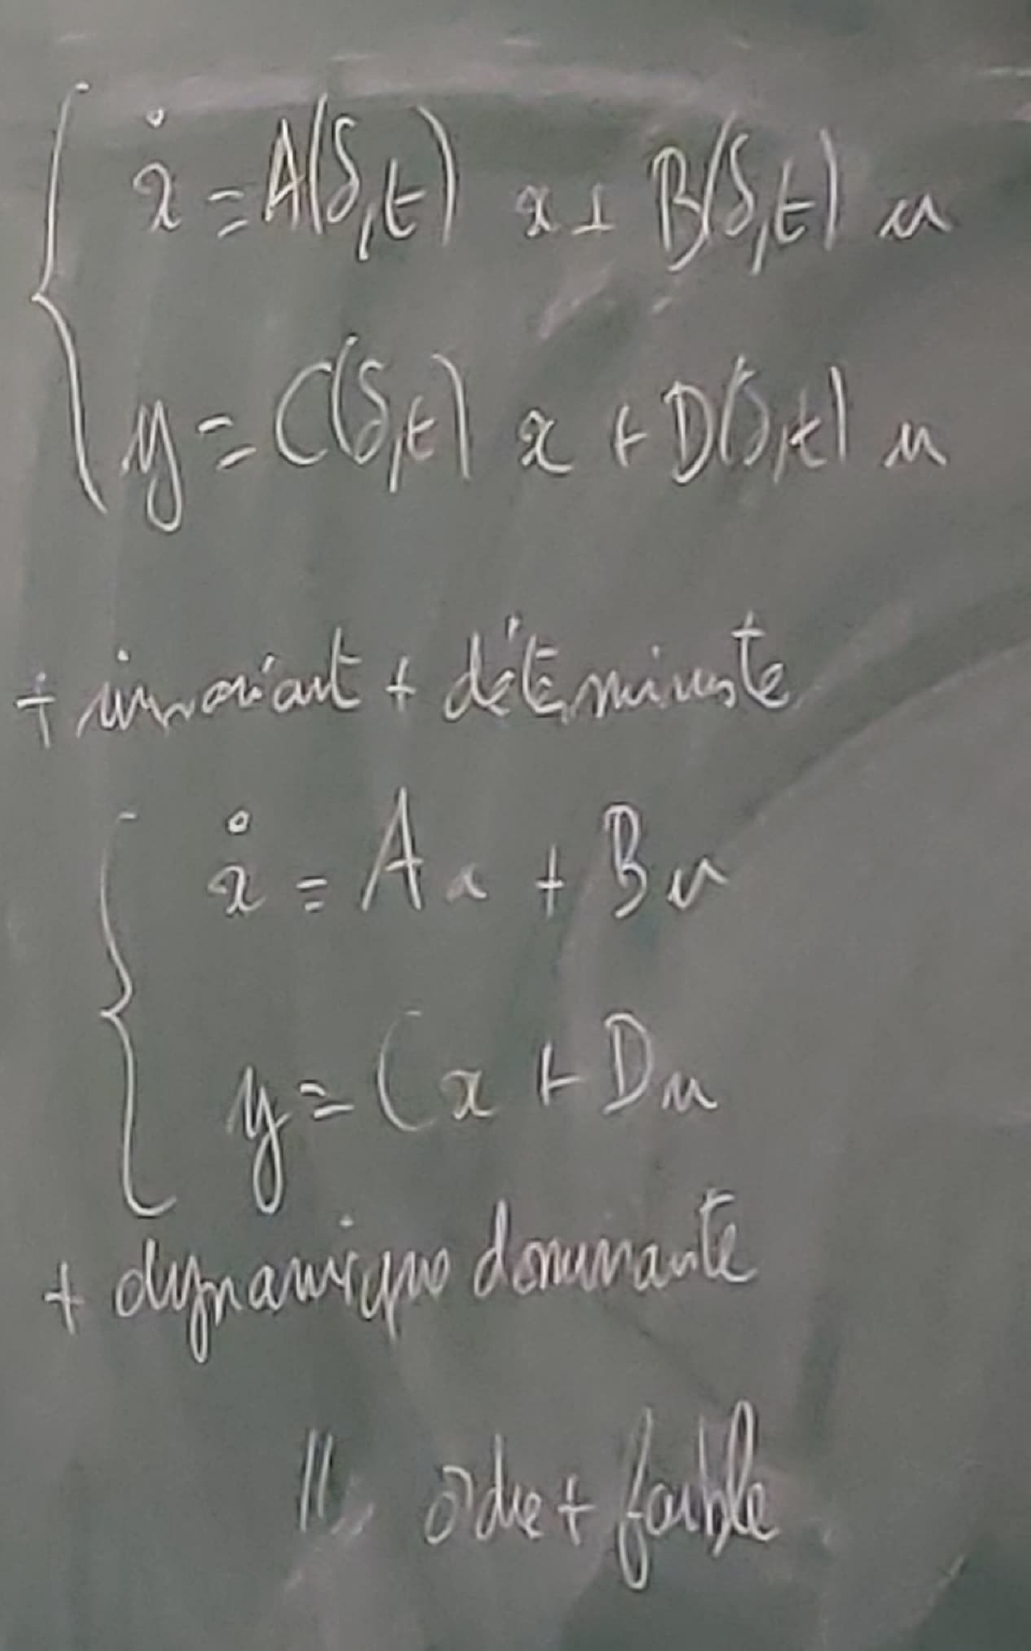 ẋ = A(δ,t) x + B(δ,t) u
y = C(δ,t) x + D(δ,t) u
+ invariant + déterministe
ẋ = Ax + Bu
y = Cx + Du
+ dynamique dominante
// ordre + faible